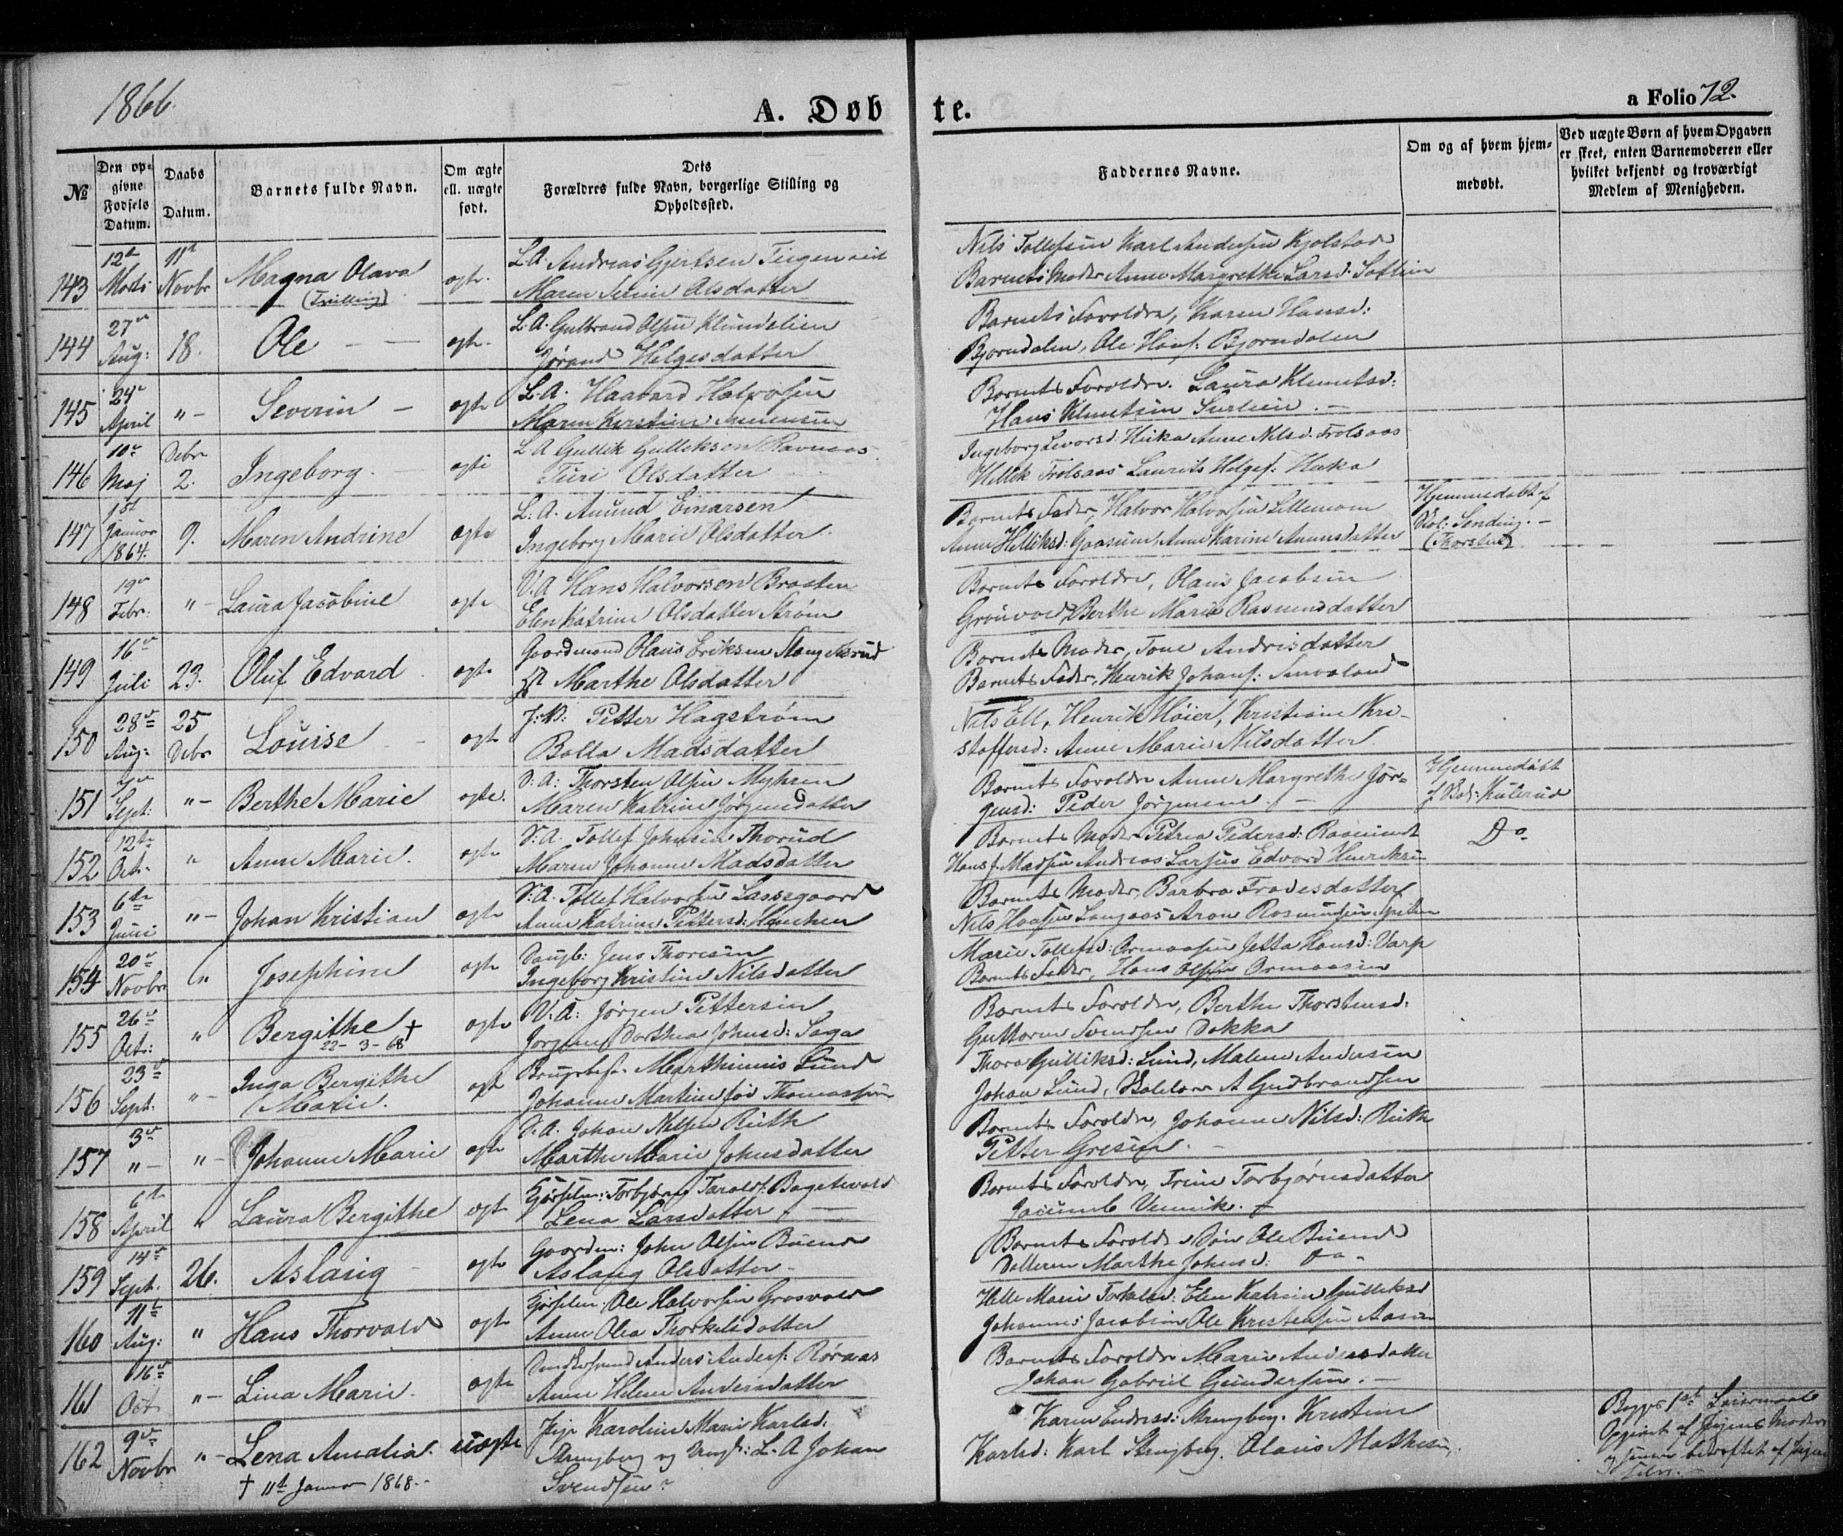 1866.
A. Døbte.
a Folio 72.
№
Den opgivne Fødsels Datum.
Daabs Datum.
Barnets fulde Navn.
Om ægte ell. uægte født.
Dets Forældres fulde Navn, borgerlige Stilling og Opholdssted.
Faddernes Navne.
Om og af hvem hjemmedøbt.
Ved uægte Børn af hvem Opgaven er skeet, enten Barnemoderen eller hvilket bekjendt og troværdigt Medlem af Menigheden.
143 12te Marts 11te Novbr Magna Olava (Tvilling) ægte L.A. Andreas Gjertsen
Olsdatter
Nils Tollefsen Karl Andersen Kjolstad
Barnets Moder Anne Margrethe Larsd:
144 27de Aug: 18. Ole ægte L.A. Gulbrand Olsen
Jørand Helgesdatter
Barnets Forældre, Karen Hansd:
Bjørndalen, Ole Hans: Bjørndalen
145 24de April "- Severin - ægte L.A. Haavard Halvorsen
Maren Kirstine
Barnets Forældre. Laura Klemetsd:
Hans Klemetsen
146 10de Maj Debr 2. Ingeborg. ægte L.A. Gullik Gulliksen Ravnaas
Turi Olsdatter
Ingeborg Anne Nilsd: Trolsaas
Trolsaas Laurits Helges: Huka
147 1ste Januar 1864. 9. Maren Andrine ægte L.A. Amund Einarsen
Ingeborg Marie Olsdatter.
Barnets Fader, Halvor Halvorsen Lillemoen
Anne Helliksd: Anne Karine
Hjemmedøbt af
Sending. -
(Thorsted)
148 19de Febr. "- Laura Jacobine ægte V.A. Hans Halvorsen Braaten
Elen Katrine Olsdatter Strøm
Barnets Forældre, Olaus Jacobsen
Grønvold, Berthe Marie Rasmusdatter
149 16de Juli 23. Oluf Edvard ægte Gaardmand Olaus Eriksen
Marthe Olsdatter
Barnets Moder, Tone Andrisdatter
Barnets Fader, Henrik Johans:
150 28de Aug: 25 Debr Louise ægte Petter Hagstrøm
Bolla Madsdatter
Nils Ell, Henrik Høier, Kristiane Kri-
stoffersd: Anne Marie Nilsdatter
151 Sept: "- Berthe Marie ægte. V.A: Thorsten Olsen Myhren
Maren Katrine Jørgensdatter
Barnets Forældre Anne Margrethe Jør-
gensd: Peder Jørgensen. -
Hjemmedøbt
152 12te Oct. " Anne Marie. ægte V.A. Tollef Johnsen Thorud
Maren Johanne Madsdatter
Barnets Moder Petrea Pedersd:
Hans J. Madsen Andreas Larsen Edvard Henriksen
Do
153 6te Juni "- Johan Kristian ægte V.A. Tollef Halvorsen Lassegaard
Anne Katrine Pettersd:
Barnets Moder, Barbra Frodesdatter
Nils Hansen Langaas Aron
154 20de Novbr " Josephine ægte Jens Thoresen
Ingeborg Kristine Nilsdatter
Marie Tollefsd: Ormaasen Jetta Hansd: Varp
Barnets Fader, Hans Olsen Ormaasen
155 26de Oct: " Bergithe † 22-3-68 ægte V.A: Jørgen Pettersen
Jørgine Dorthea Johnsd: Saga
Barnets Forældre, Berthe Thorstensd:
Guttorm Svensen Dokka
156 23de Sept. "- Inga Bergithe Marie. ægte Marthinius Lund
Johanne Martine fød Thomassen
Thora Gulliksd: Lund, Malene Andersen
Johan Lund, A Gudbrandsen
157 3de "- "- Johanne Marie ægte V.A. Johan Nilsen Ruth
Marthe Marie Johnsdatter
Barnets Forældre, Johanne Nilsd: Ruth
Petter Gresen -
158 6te April " Laura Bergithe ægte Torbjørn Taralds:
Lena Larsdatter. -
Barnets Forældre, Trine Torbjørnsdatter
159 14de Sept. 26. Aslaug - ægte Gaardm: John Olsen Buene
Aslaug Olsdatter -
Barnets Forældre Søn Ole Buene
Datteren Marthe Johnsd: Do -
160 11te Aug: " Hans Thorvald ægte Ole Halvorsen Grosvold
Anne Olea Thorkelsdatter
Helle Marie Torkelsd: Elen Katrine Gulliksd
Johannes Jacobsen Ole Kristensen Aasen
161 16de Oct. "- Lina Marie. ægte Anders Anders: Røraas
Anne Helene Andersdatter
Barnets Forældre Marie Andersdatter
Johan Gabriel Gundersen. -
162 9de Novbr "- Lena Amalia. uægte Pige Karoline Marie Karlsd:
Strengberg og Ungk: L.A Johan
Svendsen
† 11te Januar 1868. -
Karen Endresd: Strengberg. Kristine
Karlsd: Karl Strengberg. Olaus Mathesen
Begges 1ste Leiermaal
Opgivet af Pigens Moder
og senere bekræftet af Pigen
selv. -